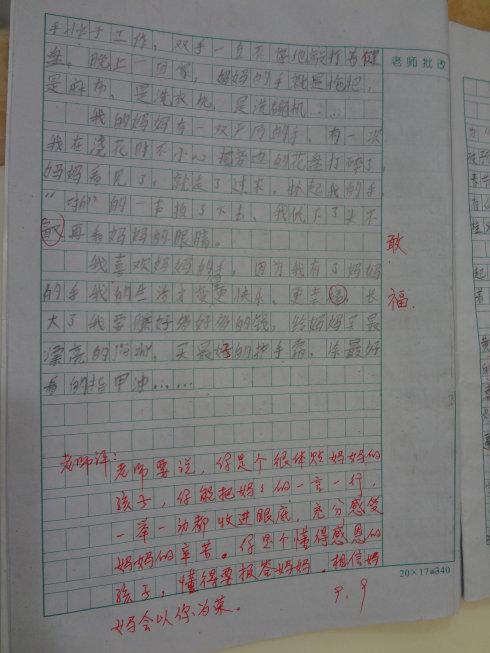 手指尖子工作，双手一直不停地敲打着健
盘。晚上一回家，妈妈的手就是拖把，
是麻布，是洗衣机，是洗碗机……
我的妈妈有一双严厉的手，有一次
我在浇花时不小心把旁边的花盆打碎了，
妈妈看见了，就走了过来，抬起我的手，
的一声拍了下去，我低下了头不
敢再看妈妈的眼睛。
我喜欢妈妈的手，因为我有了妈妈
的手我的生活才变更快乐、更幸福，长
大了我要赚好多好多的钱，给妈妈买最
漂亮的 买最好的护手霜，涂最好
看的指甲油……
老师批改
敢
福
老师评：
老师要说，你是个很体贴妈妈的
孩子，你能把妈妈的一言一行，
一举一动都收进眼底，充分感受
妈妈的辛苦。你是个懂得感恩的
孩子，懂得要报答妈妈，相信妈
妈会以你为荣。
9.9
20×17=340